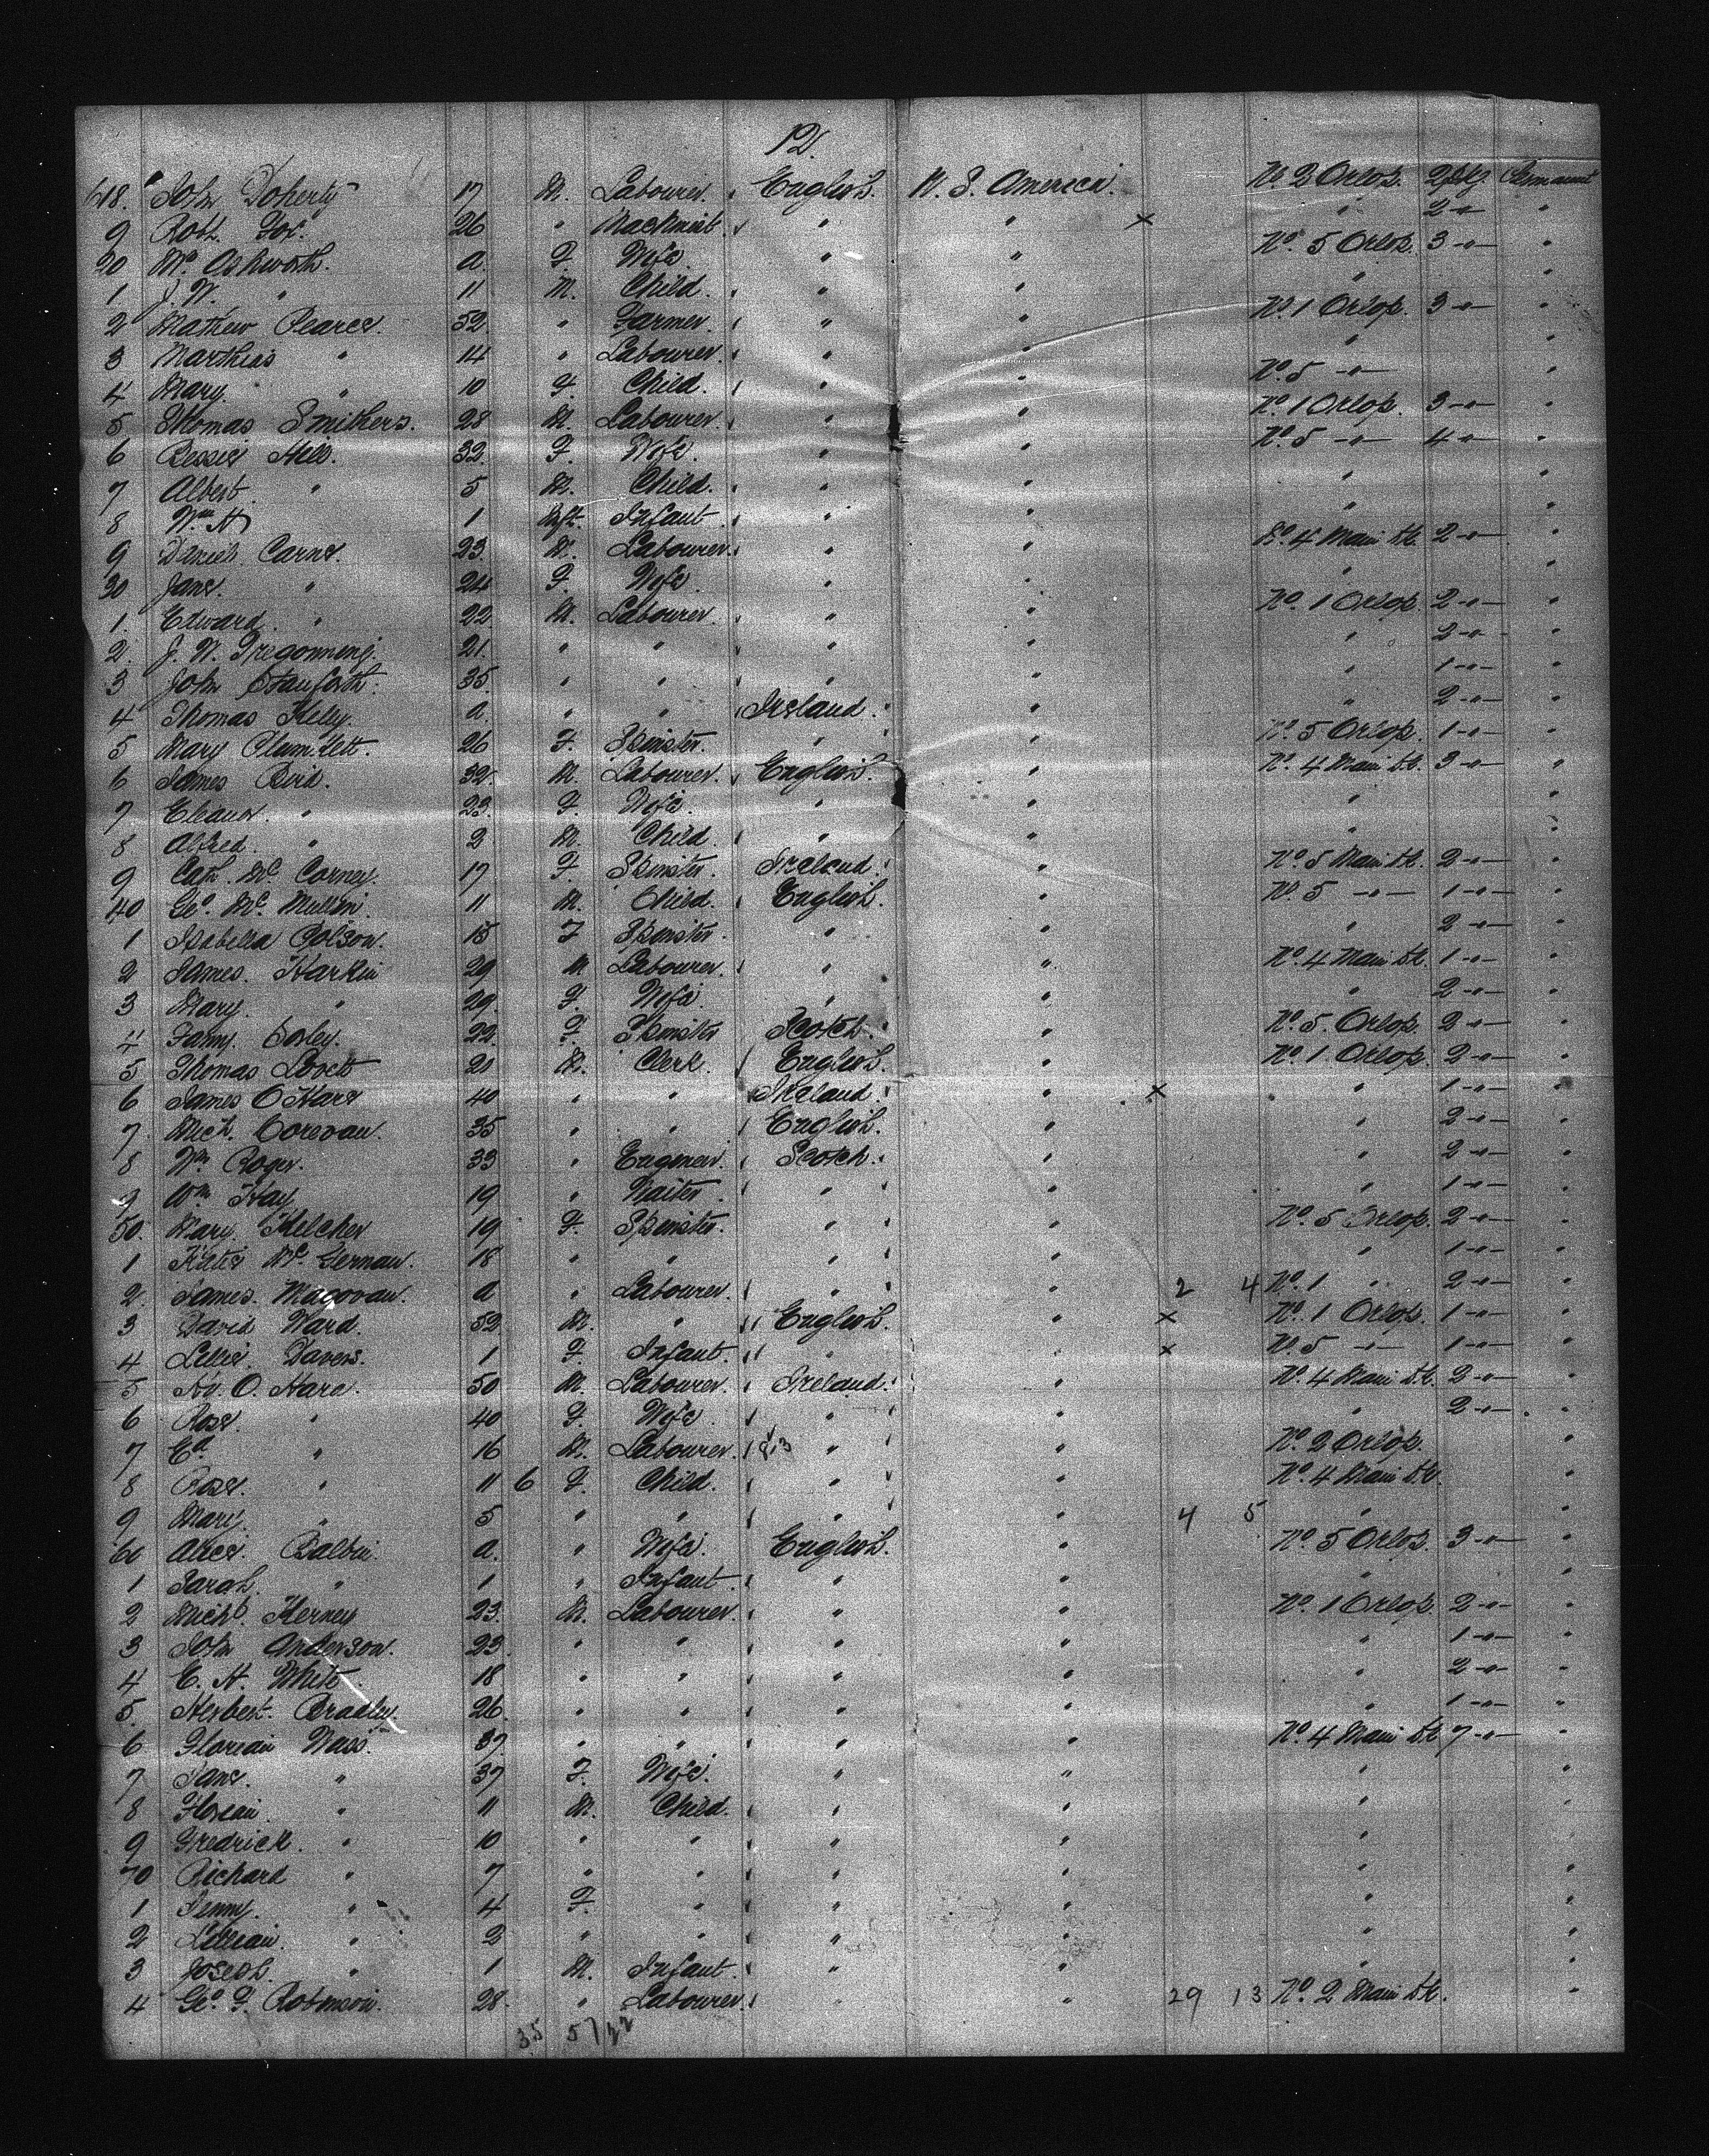 12.
618. John Doherty 17 M. Labourer. English. U. S. America. No. 2 Orlop. 2 pkg. Permanent
9 Robt. Fox. 26 " Machinist. " " × " 2 -"- "
20 Mrs Ashworth. a. F. Wife. " " No. 5 Orlop. 3 -"- "
1 J. W. " 11 M. Child. " " " "
2 Mathew Pearce. 52 " Farmer. " " No. 1 Orlop. 3 -"- "
3 Marthias " 14 " Labourer. " " " "
4 Mary. " 10 F. Child. " " No. 5 -"- "
5 Thomas Smithers. 28 M. Labourer. " " No. 1 Orlop. 3 -"- "
6 Bessie 32. F. Wife. " " No. 5 -"- 4 -"- "
7 Albert. " 5 M. Child. " " " "
8 Wm. H 1 Inft. Infant. " " " "
9 Daniel. Carne. 23 M. Labourer. " " No. 4 Main Dk. 2 -"- "
30 Jane. " 24 F. Wife " " " "
1. Edward. " 22 M. Labourer. " " No. 1 Orlop. 2 -"- "
2. J. W. Tregonning. 21. " " " " " 2 -"- "
3 John Stanforth. 35. " " " " " 1 -"- "
4 Thomas Kelly. a. " " Ireland. " " 2 -"- "
5 Mary Plunkett. 26 F. Spinster. " " No. 5 Orlop. 1 -"- "
6 James Bird. 32. M. Labourer. English. " No. 4 Main Dk. 3 -"- "
7 Eleanor. " 23. F. Wife. " " " "
8 Alfred. " 2 M. Child. " " " "
9 Cath. Mc Corney. 17. F. Spinster. Ireland. " No. 5 Main Dk. 2 -"- "
40 Geo. Mc. 11 M. Child. English. " No. 5 -"- 1 -"- "
1 Isabella Polson. 15 F Spinster. " " " 2 -"- "
2 James. Harkin 29 M Labourer. " " No. 4 Main Dk. 1 -"- "
3 Mary. " 29. F. Wife. " " " 2 -"- "
4 Fanny. 22. F. Spinster Scotch. " No. 5. Orlop. 2 -"- "
5 Thomas Lovett 21 M. Clerk. English. " No. 1 Orlop. 2 -"- "
6 James O Hare 40 " " Ireland. " × " 1 -"- "
7 Mich. Corevan. 35 " " English. " " 2 -"- "
8 Wm. Roger. 33 " Engineer. Scotch. " " 2 -"- "
9 Wm. Hay 19 " Waiter. " " " 1 -"- "
50. Mary. Kelcher 19 F. Spinster. " " No. 5 Orlop. 2 -"- "
1 Katie Mc. Gernan. 18 " " " " " 1 -"- "
2. James. Magovan. a " Labourer. " " 2 4 No. 1 " 2 -"- "
3 David Ward. 52 M. " English. " × No. 1 Orlop. 1 -"- "
4 Lillie. Davers. 1 F. Infant. " " × No. 5 -"- 1 -"- "
5 O. Hara. 50 M. Labourer. Ireland. " No. 4 Main Dk. 2 -"- "
6 Rose. " 40 F. Wife. " " " 2 -"- "
7 Ed. " 16 M. Labourer. " " No. 2 Orlop. "
8 Rose. " 11 6 F. Child. " " No. 4 Main Dk. "
9 Mary. " 5 " " " " 4 5 " "
60 Alice. Balbin. a. " Wife. English. " No. 5 Orlop. 3 -"- "
1 Sarah. " 1 " Infant. " " " "
2 Michl. Kerney 23. M. Labourer. " " No. 1 Orlop. 2 -"- "
3 John Anderson. 23. " " " " " 1 -"- "
4 E. H. White. 18 " " " " " 2 -"- "
5. Herbert. Bradley. 26. " " " " " 1 -"- "
6 Florian Wass. 37. " " " " No. 4 Main Dk 7 -"- "
7 Jane. " 37 F. Wife. " " " "
8 Florian. " 11 M. Child. " " " "
9 Fredrick. " 10 " " " " " "
70 Richard " 7 " " " " " "
1 Jenny. " 4 F. " " " " "
2 Lillian. " 2 " " " " " "
3 Joseph. " 1 M. Infant. " " " "
4 Geo. F. Robinson. 28. " Labourer. " " 29 13 No. 2 Main Dk. "
35 57 22